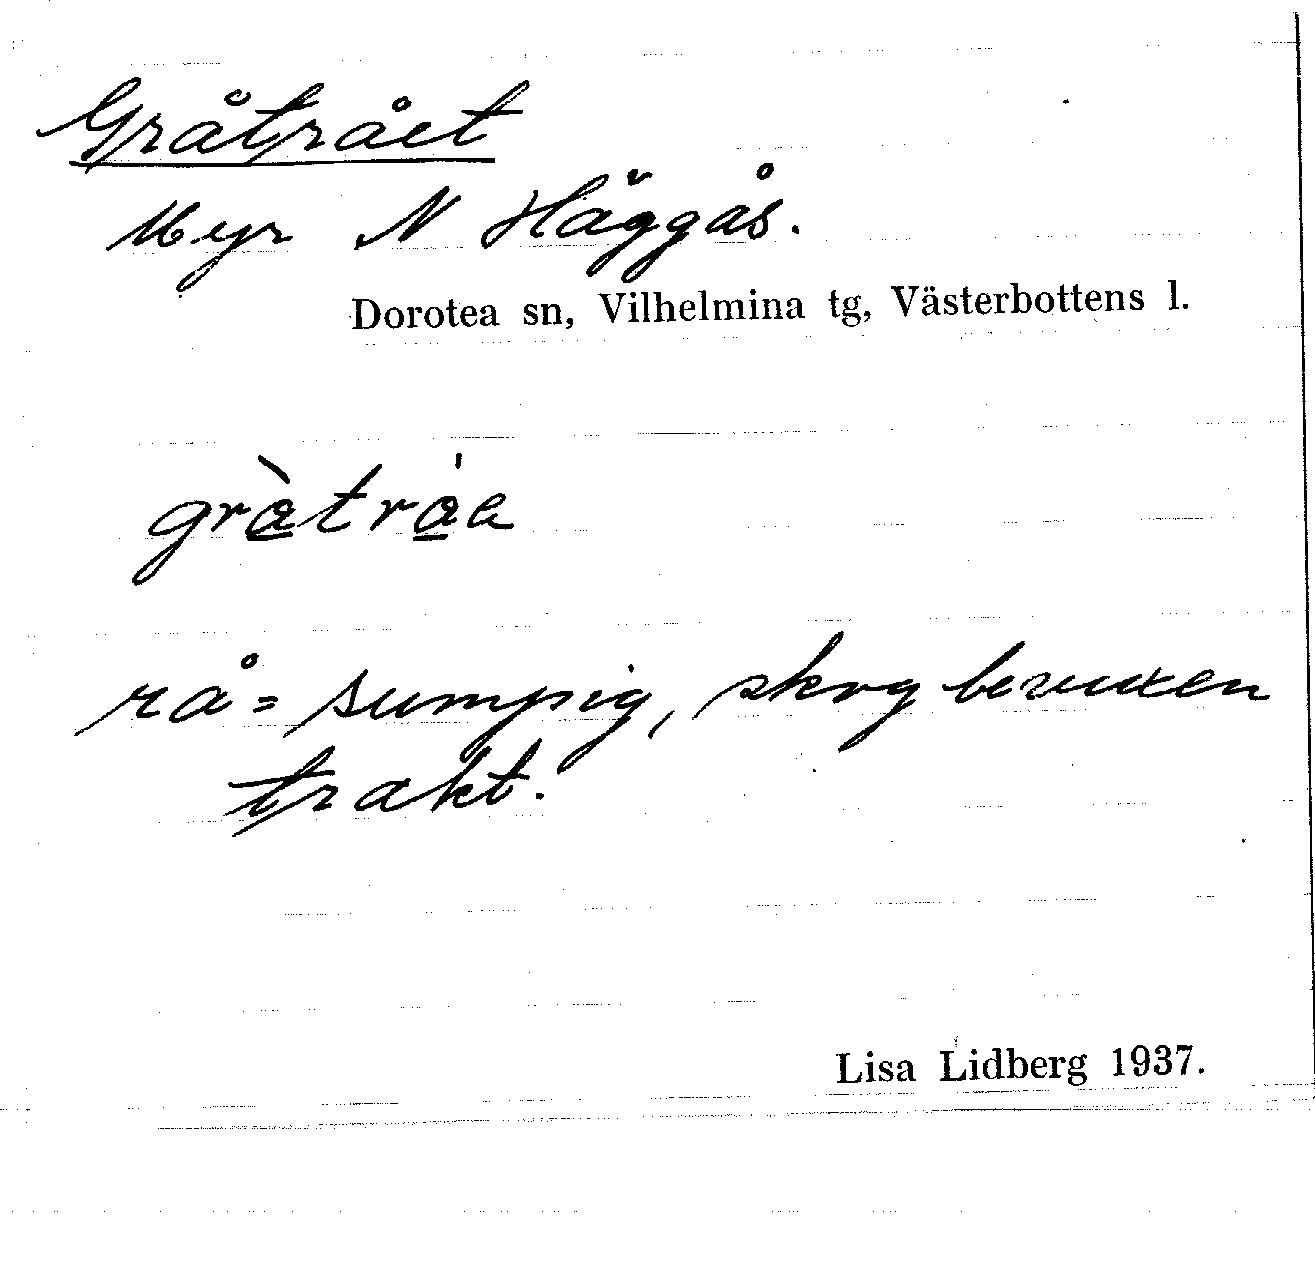 Gråtrået
Myr N Häggås.
Dorotea sn, Vilhelmina tg, Västerbottens l.
rå = sumpig, skogbevuxen
trakt.
Lisa Lidberg 1937.